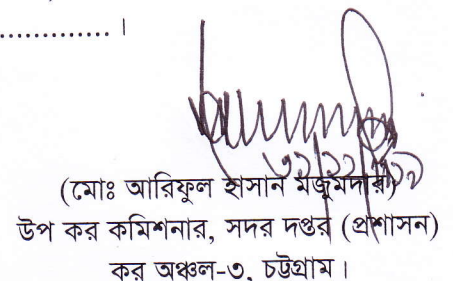 .................... ।
(মোঃ আরিফুল হাসান মজুমদার)
উপ কর কমিশনার, সদর দপ্তর (প্রশাসন)
কর অঞ্চল-৩, চট্টগ্রাম।